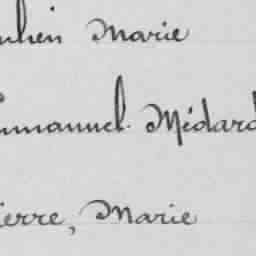 Marie
Emmanuel. Médard
ierre, Marie